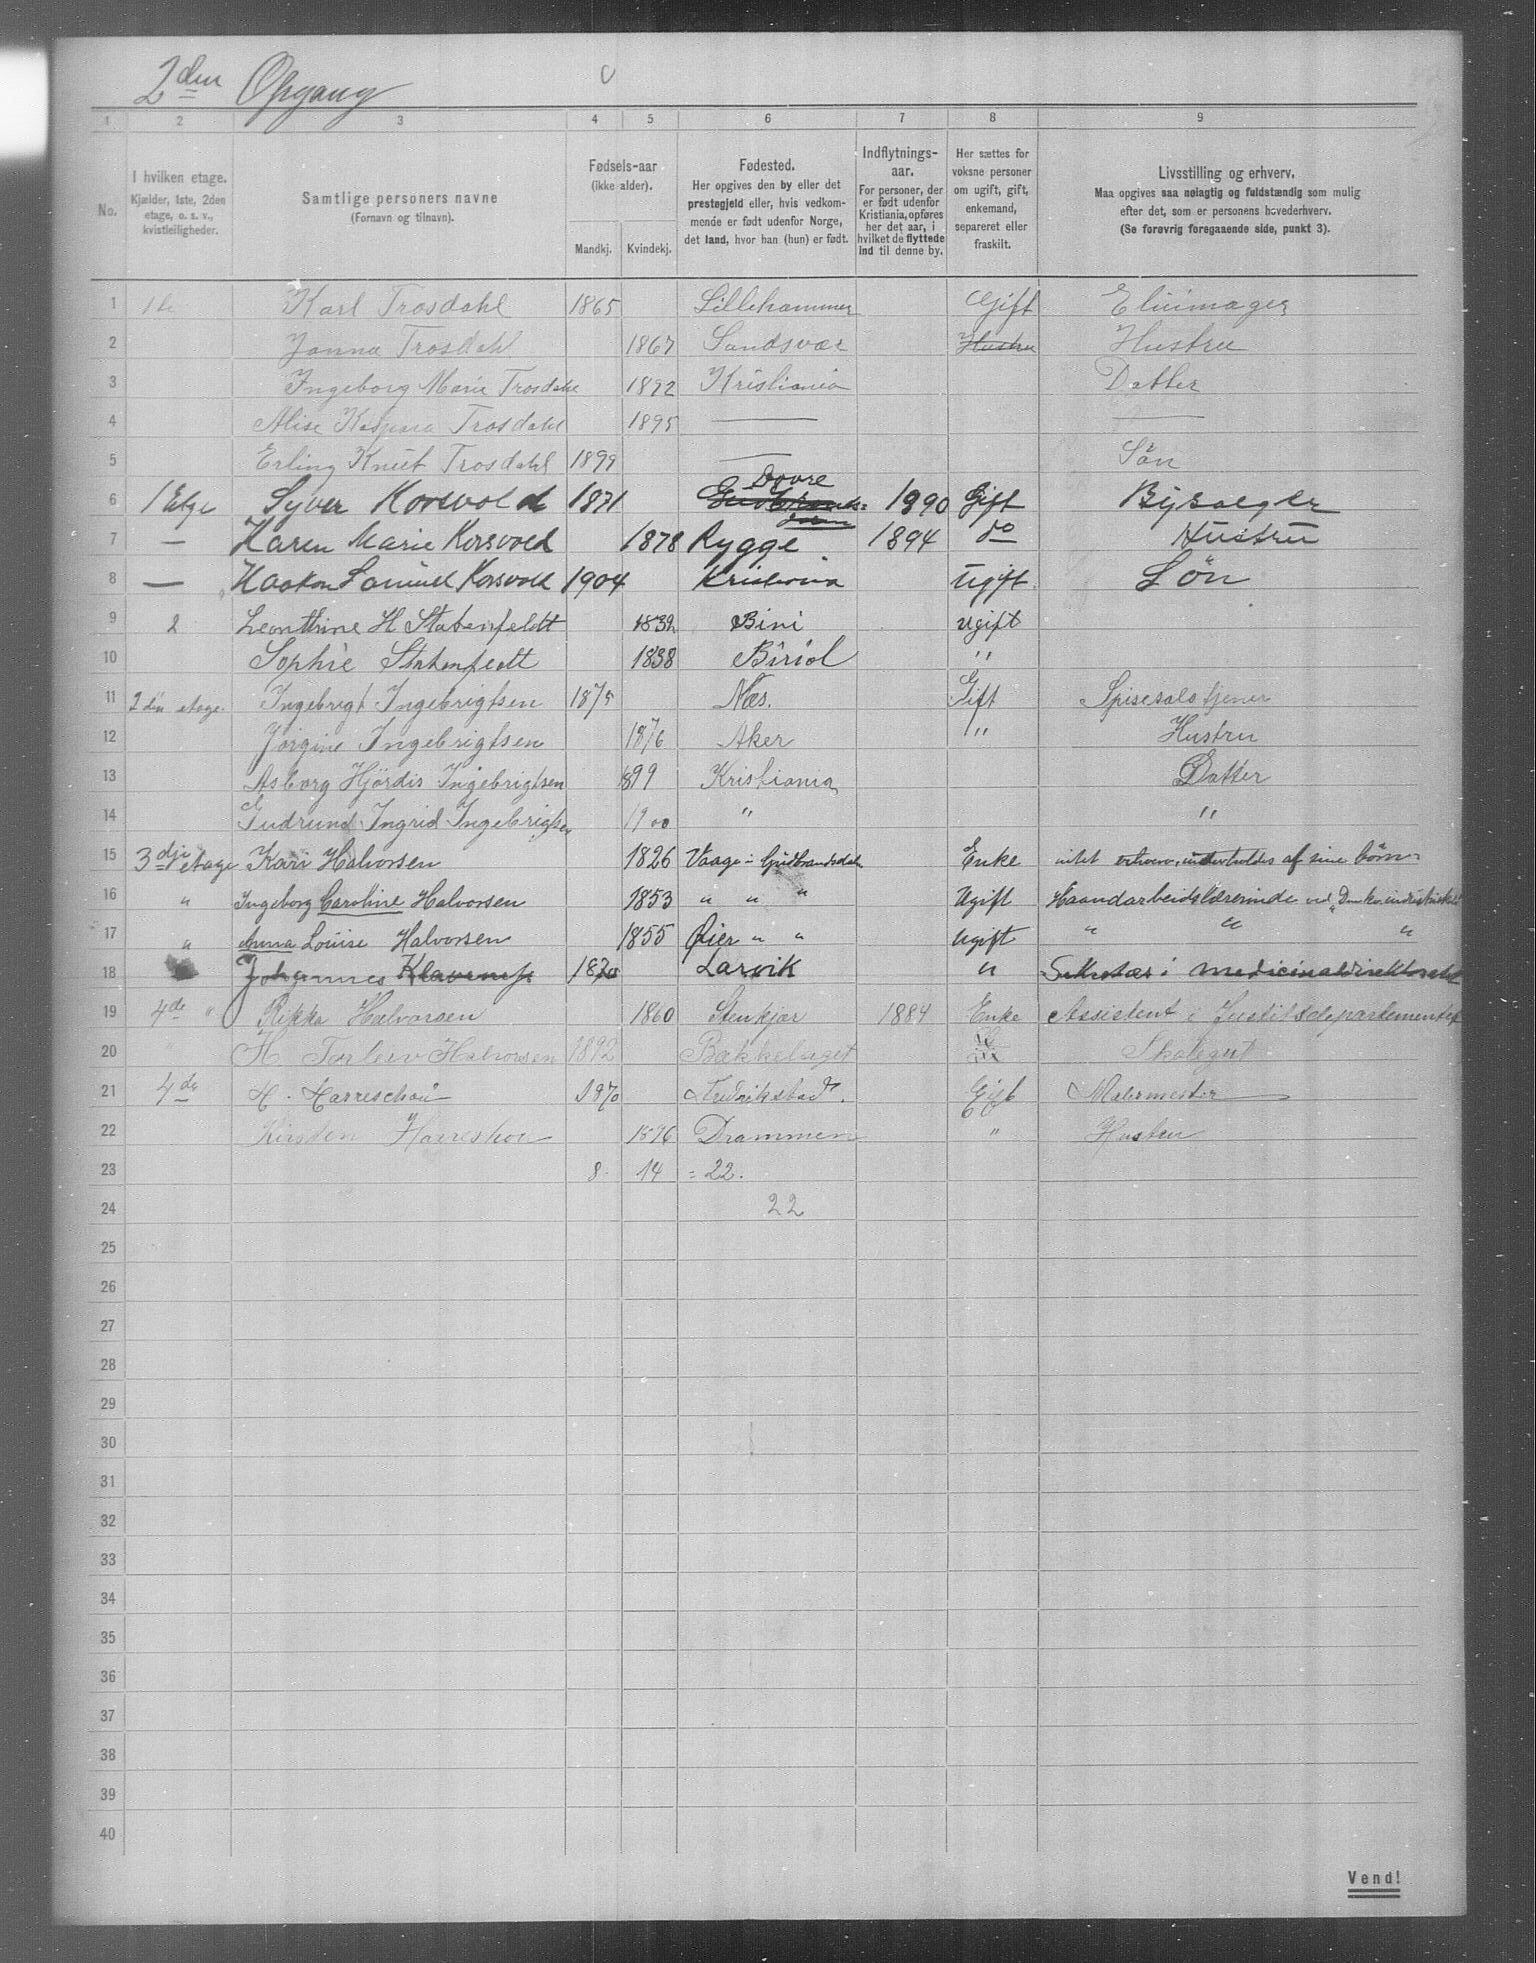 2den Opgang
1 2 3 4 5 6 7 8 9
No.
I hvilken etage.
Kjælder, 1ste, 2den
etage, o. s. v.,
kvistleiligheder.
Samtlige personers navne
(Fornavn og tilnavn).
Fødsels-aar
(ikke alder).
Mandkj. Kvindekj.
Fødested.
Her opgives den by eller det
prestegjeld eller, hvis vedkom-
mende er født udenfor Norge,
det land, hvor han (hun) er født.
Indflytnings-
aar.
For personer, der
er født udenfor
Kristiania, opføres
her det aar, i
hvilket de flyttede
ind til denne by.
Her sættes for
voksne personer
om ugift, gift,
enkemand,
separeret eller
fraskilt.
Livsstilling og erhverv.
Maa opgives saa nøiagtig og fuldstændig som mulig
efter det, som er personens hovederhverv.
(Se forøvrig foregaaende side, punkt 3).
1 1ste Karl Trosdahl 1865 Lillehammer Gift
2 Janna Trosdahl 1867 Sandsvær Hustru Hustru
3 Ingeborg Marie Trosdahl 1892 Kristiania Datter
4 Alise Kaspara Trosdahl 1895 —
5 Erling Knut Trosdahl 1899 — Søn
6 1 Etge Syver Korsvold 1871 Dovre Gudbrandsdalen 1890 Gift Bysælger
7 — Karen Marie Korsvold 1878 Rygge 1894 do Hustru
8 — Haakon Samuel Korsvold 1904 Kristiania Ugift Søn
9 2 Leonthine H Stabenfeldt 1832 Biri ugift
10 Sophie Stabenfeldt 1838 Biriol "
11 2den etage. Ingebrigt Ingebrigtsen 1875 Næs. Gift Spisesalstjener
12 Jørgine Ingebrigtsen 1876 Aker " Hustru
13 Asborg Hjördis Ingebrigtsen 1899 Kristiania Datter
14 Gudrund Ingrid Ingebrigtsen 1900 " "
15 3dje etage Kari Halvorsen 1826 Vaage i Gudbrandsdalen Enke intet erhverv, underholdes af sine børn
16 " Ingeborg Caroline Halvorsen 1853 " " " Ugift Haandarbeidslærerinde ved
17 " Anna Louise Halvorsen 1855 Øier " " Ugift " " "
18 Johannes Klavenes 1870 Larvik " Sekretær i Medicinaldirektoratet
19 4de " Rikka Halvorsen 1860 Stenkjær 1884 Enke Assistent i Justitsdepartementet
20 " H. Torleiv Halvorsen 1892 Bækkelaget Skolegut
21 4de H. Harreschou 1870 Fredrikstad. Gift Malermester
22 Kirsten Harreshou 1876 Drammen " Hustru
23 8. 14 = 22.
24 22
25
26
27
28
29
30
31
32
33
34
35
36
37
38
39
40
Vend!